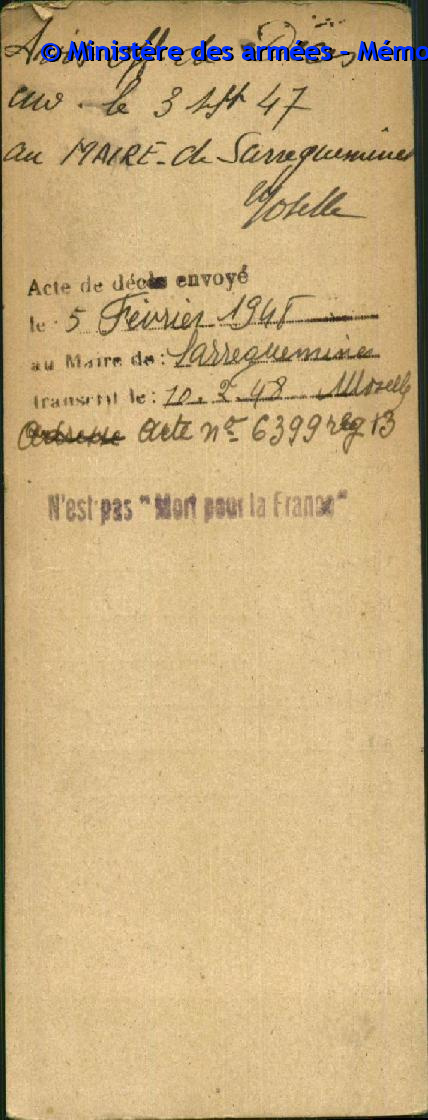 © Ministère des armées - Mémo
Avis off de Décès
env. le 3 Spt 47
au MAIRE de Sarreguemines
Moselle
Acte de décès envoyé
le 5 Février 1948
au Maire de: Sarreguemines
transcrit le: 10.2.48 Moselle
Acte n° 6399 reg 13
N'est pas "Mort pour la France"